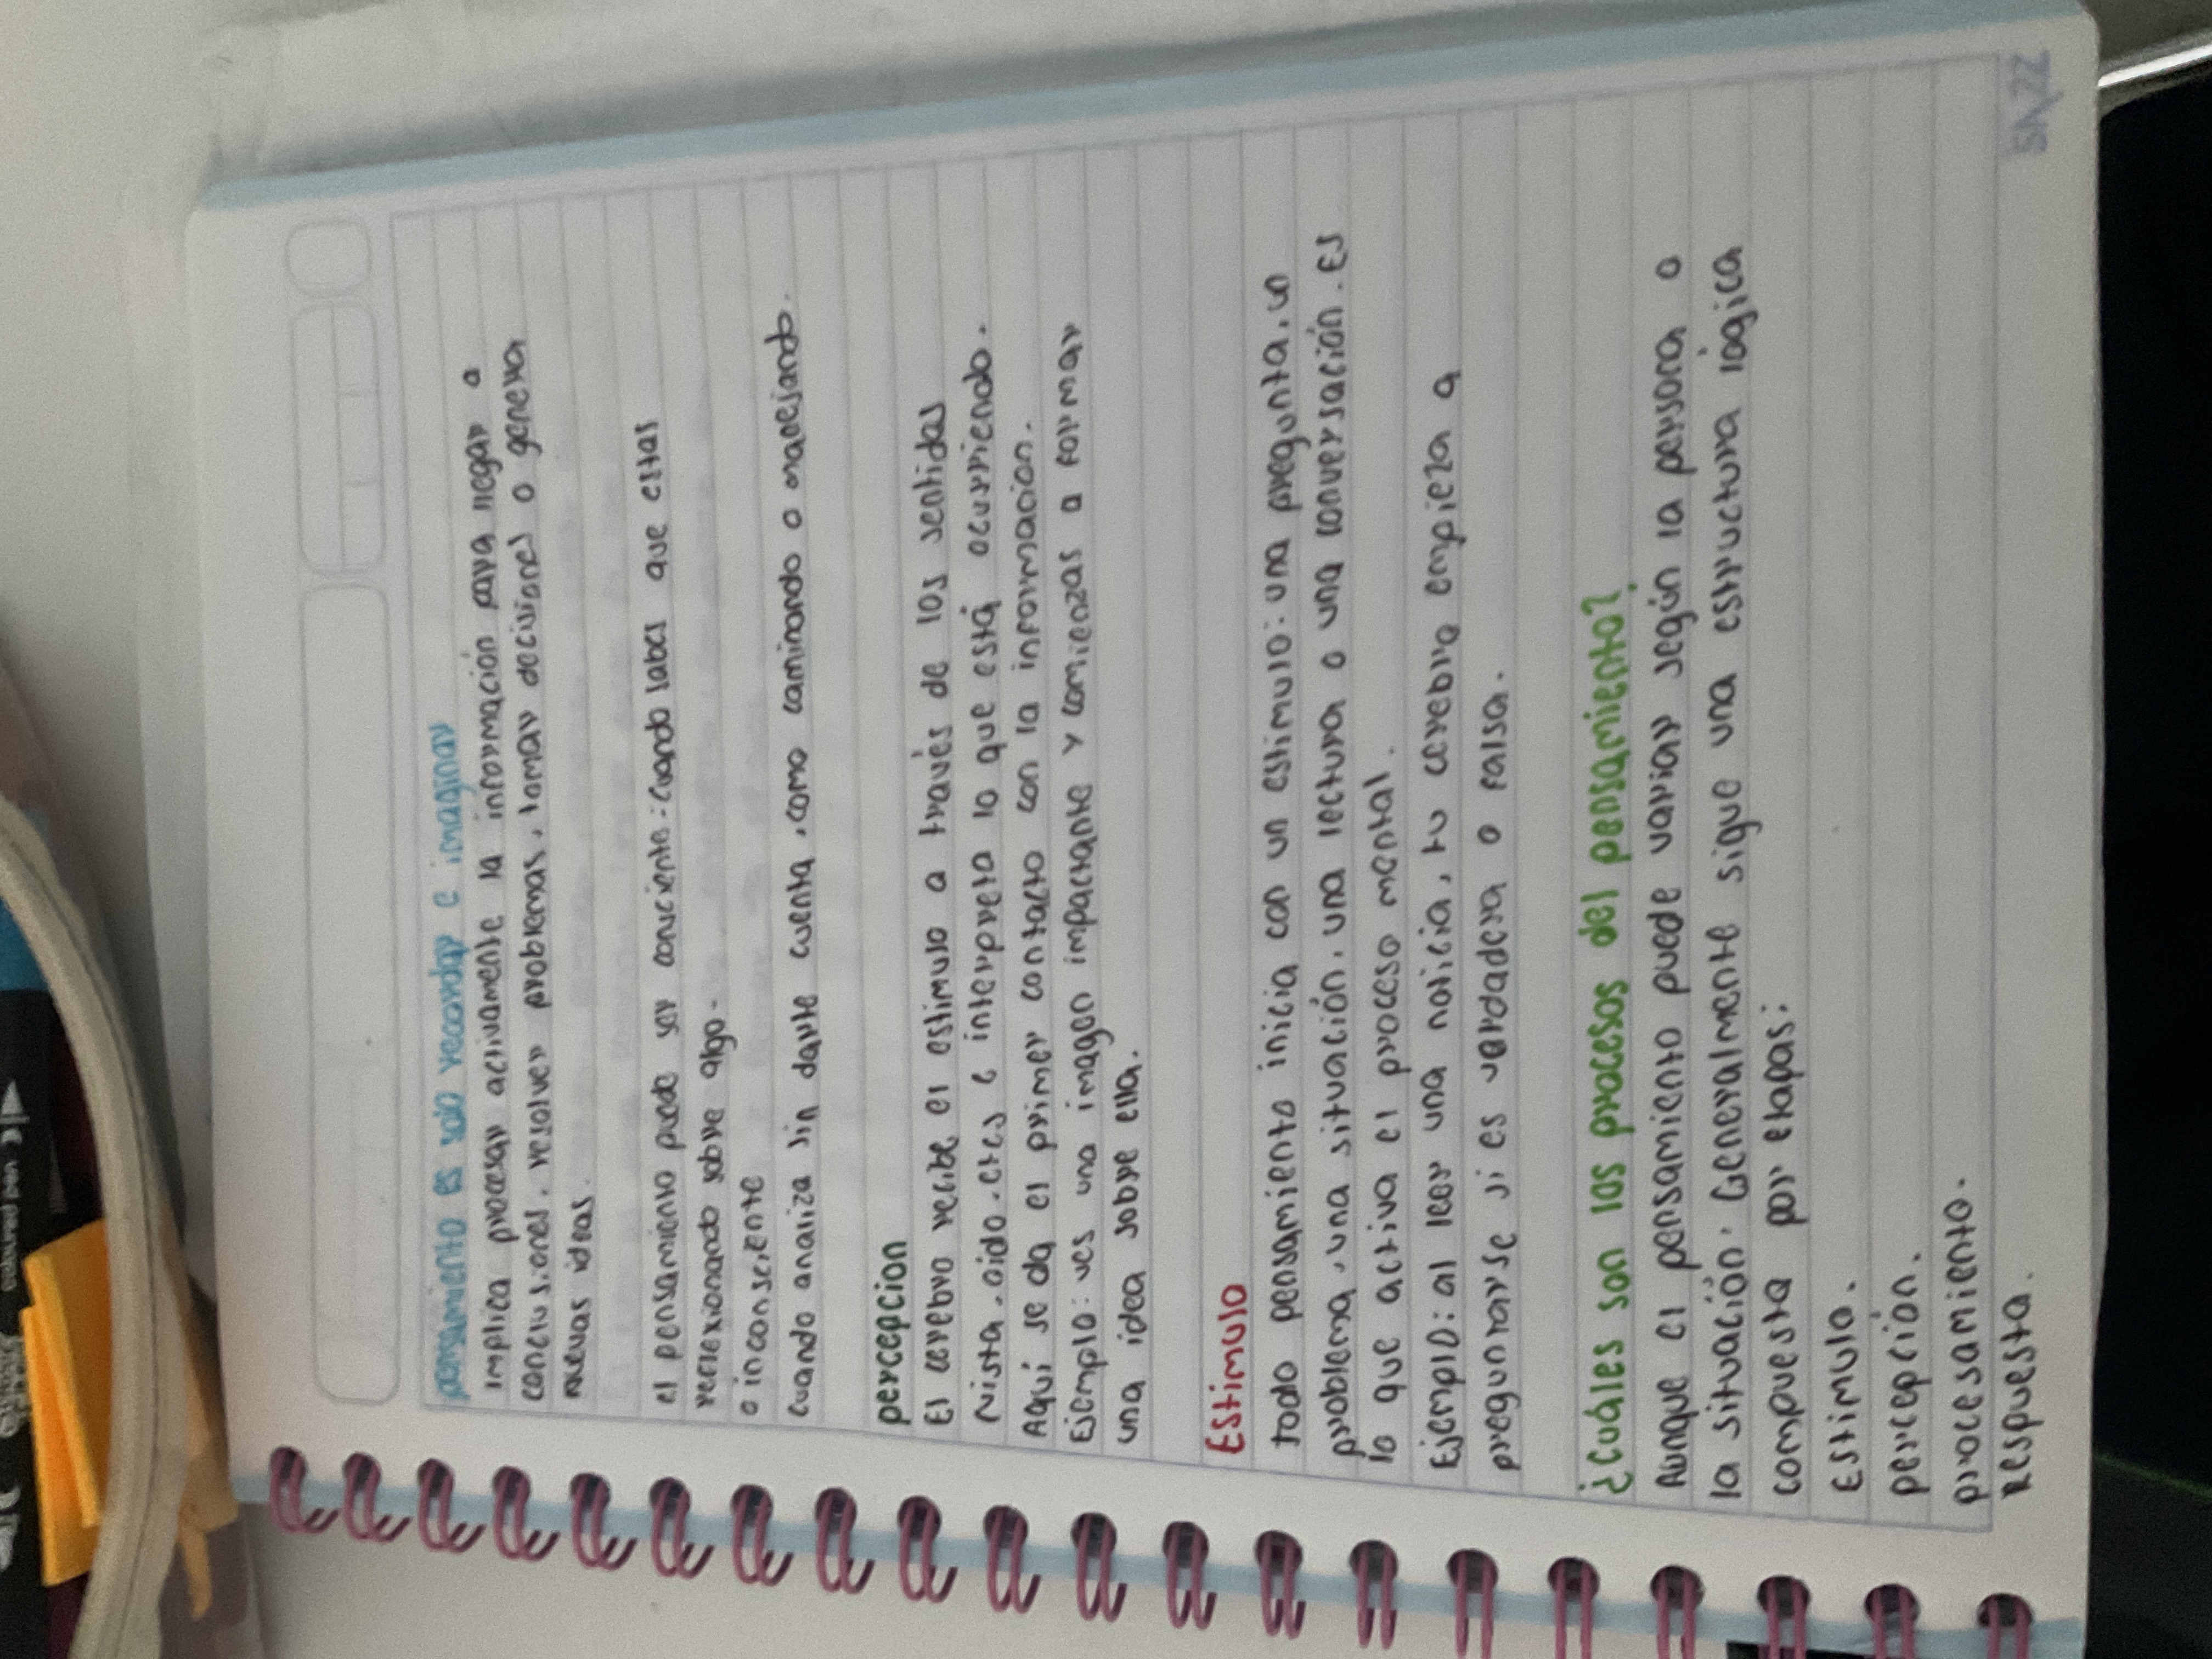 pensamiento es solo recordar e imaginar
implica procesar activamente la información para llegar a
conclusiones, resolver problemas, tomar decisiones o generra
nuevas ideas.
el pensamiento puede ser conciente: cuando sabes que estas
reflexionando sobre algo.
o inconsciente
cuando analiza sin darte cuenta, como caminando o manejando.
percepcion
El cerebro recibe el estimulo a través de los sentidas
vista, oido, etcs e interpreta lo que está ocurriendo.
Aquí se da el primer contacto con la informacion.
Ejemplo: ves una imagen impactante y comienzas a formar
una idea sobre ella.
Estimulo
todo pensamiento inicia con un estimulo: una pregunta, un
problema, una situación, una lectura o una conversación. Es
lo que activa el proceso mental.
Ejemplo: al leer una noticia, tu cerebro empieza a
preguntarse si es verdadera o falsa.
¿cuáles son los procesos del pensamiento?
Aunque el pensamiento puede variar según la persona o
la situación. Generalmente sigue una estructura lógica
compuesta por etapas:
Estimulo.
percepción.
procesamiento.
Respuesta.